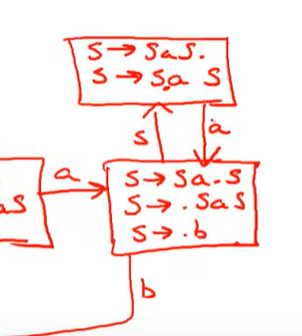 S → SaS.
S → S.a S
S
a
a
aS
S → Sa.S
S → .SaS
S → .b
b